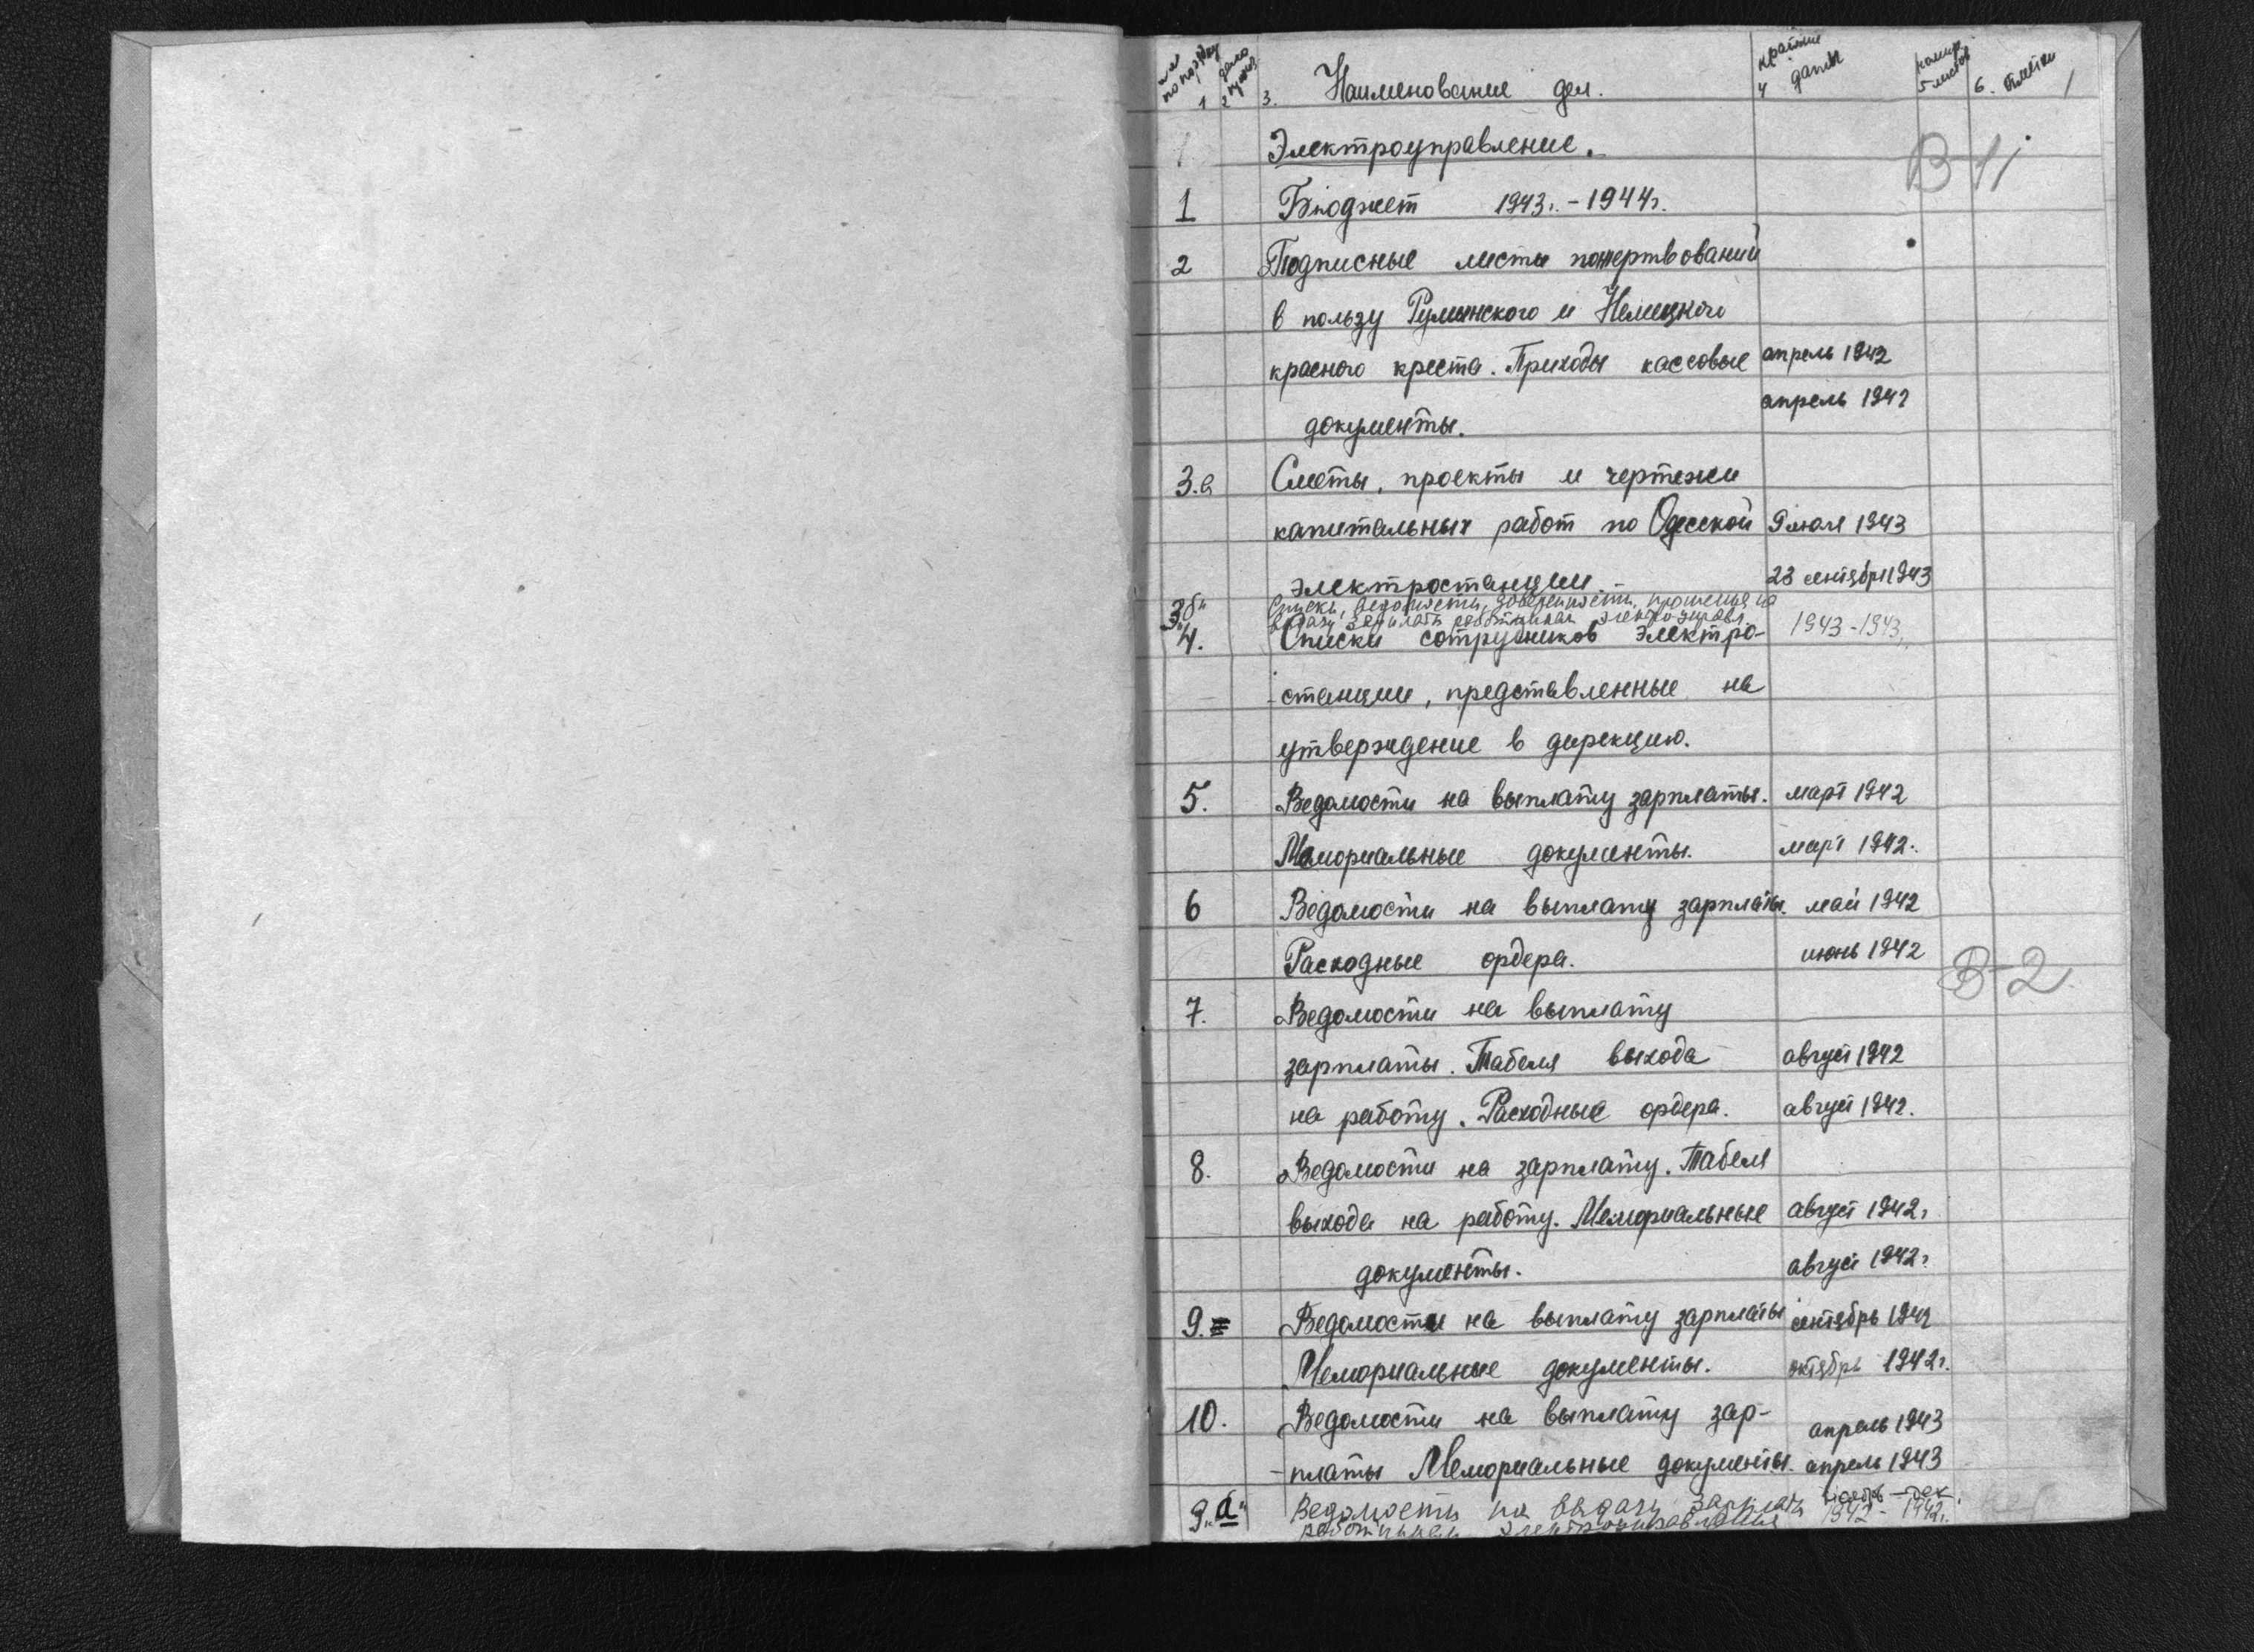 по порядку
1
2
3. Наименование дел.
крайние
4 даты
5 листов
6.
1
Электроуправление.
В-1
1 Бюджет 1943г. - 1944г.
2 Подписные листы пожертвований
в пользу Румынского и Немецкого
красного креста. Приходы кассовые апрель 1942
апрель 1942
документы.
3.а Сметы, проекты и чертежи
капитальных работ по Одесской 9 июля 1943
электростанции. 23 сентября 1943
3"б" Списки, ведомости, доверенности, прошения на
выдачу зарплаты работникам электроуправл. 1943-1943
4. Списки сотрудников электро-
-станции, представленные на
утверждение в дирекцию.
5. Ведомости на выплату зарплаты. март 1942
Мемориальные документы. март 1942.
6 Ведомости на выплату зарплаты. май 1942
Расходные ордера. июнь 1942
В-2
7. Ведомости на выплату
зарплаты. Табеля выхода август 1942
на работу. Расходные ордера. август 1942.
8. Ведомости на зарплату. Табеля
выхода на работу. Мемориальные август 1942г
документы. август 1942г.
9. Ведомости на выплату зарплаты сентябрь 1942
Мемориальные документы. октябрь 1942г.
10. Ведомости на выплату зар- апрель 1943
-платы Мемориальные документы. апрель 1943
9"а" Ведомости на выдачу зарплаты ноябрь - дек.
работникам электроуправления 1942 - 1942г.